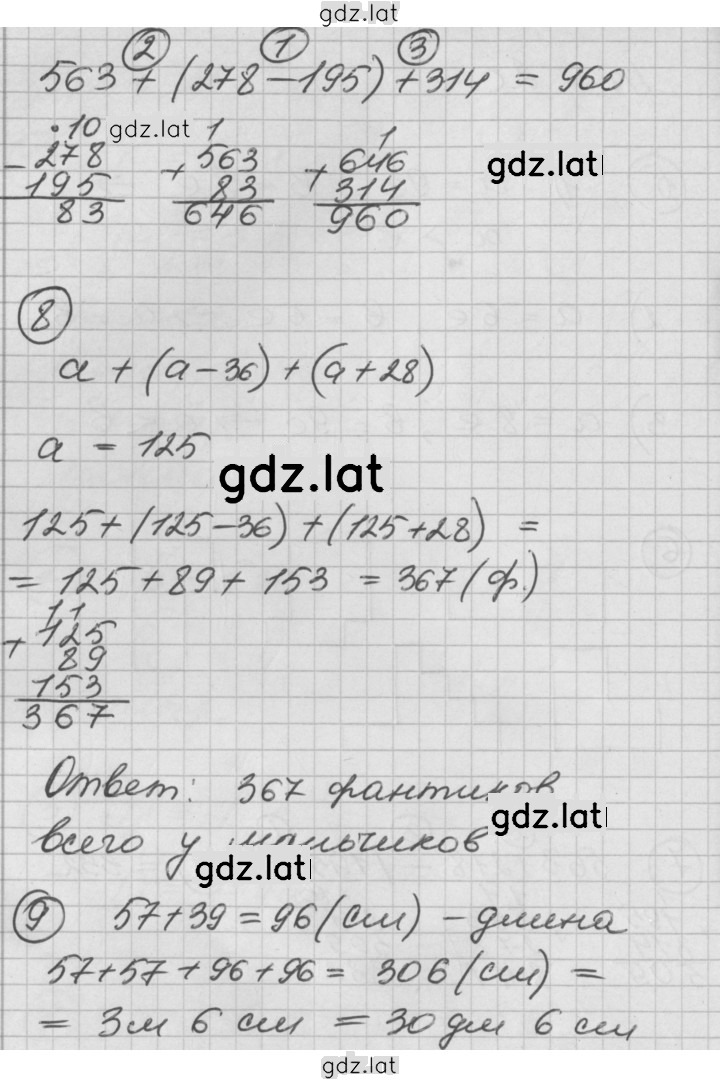 gdz.lat
② ① ③
563 + (278 - 195) + 314 = 960
•10 gdz.lat 1 1
- 278 + 563 + 646 gdz.lat
195 83 314
83 646 960
⑧
a + (a - 36) + (a + 28)
a = 125
gdz.lat
125 + (125 - 36) + (125 + 28) =
= 125 + 89 + 153 = 367 (ф.)
11
+ 125
89
153
367
Ответ: 367 фантиков
gdz.lat
всего у мальчиков
gdz.lat
⑨ 57 + 39 = 96 (см) - длина
57 + 57 + 96 + 96 = 306 (см) =
= 3м 6 см = 30 дм 6 см
gdz.lat